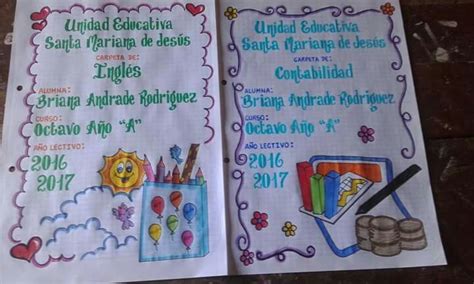 Unidad Educativa
Santa Mariana de Jesús
CARPETA DE:
Inglés
ALUMNA:
Briana Andrade Rodriguez
CURSO:
Octavo Año "A"
AÑO LECTIVO:
2016
2017
Unidad Educativa
Santa Mariana de Jesús
CARPETA DE:
Contabilidad
ALUMNA:
Briana Andrade Rodriguez
CURSO:
Octavo Año "A"
AÑO LECTIVO:
2016
2017